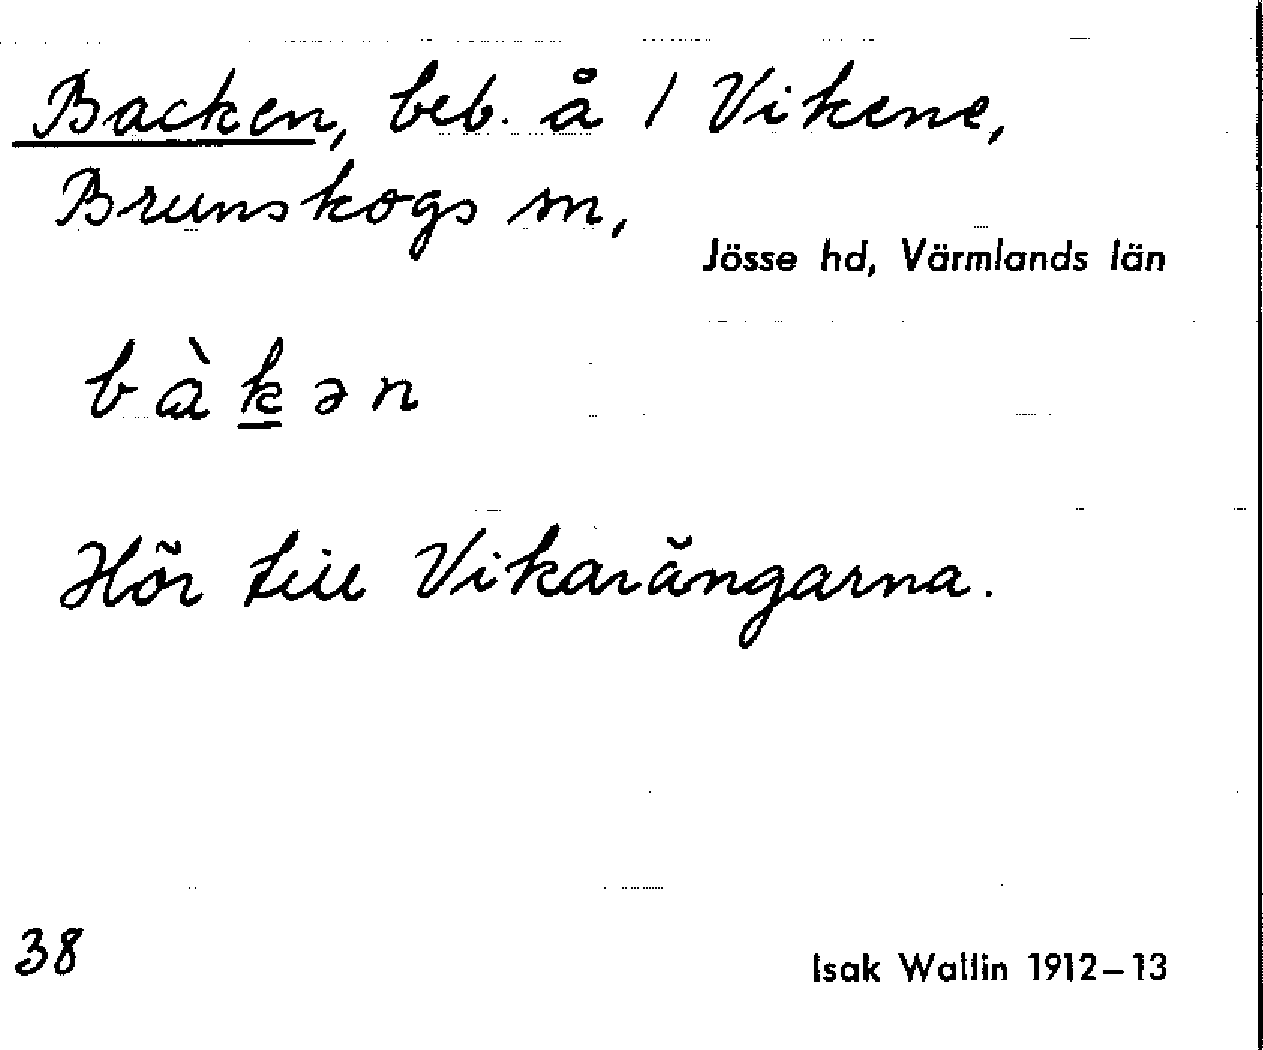 Backen, beb. å 1 Vikene,
Brunskogs sn,
Jösse hd, Värmlands län
bàk̲ən
Hör till Vikarängarna.
38
Isak Wallin 1912–13